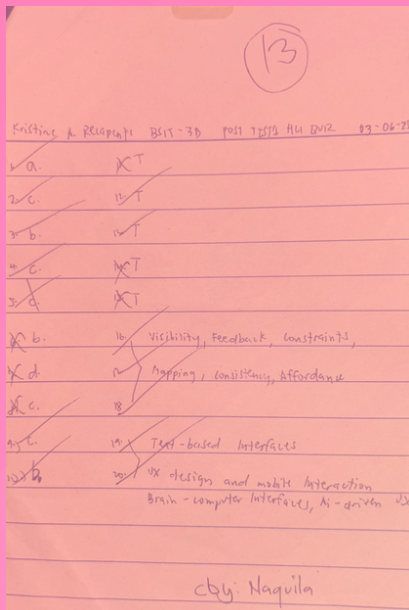 13
Kristine A Recapente BSIT-3D POST TEST HCI QUIZ 03-06-25
1. a.
2. c.
3. b.
4. c.
5. d
6. b.
7. d.
8. c.
9. c.
10. b
11. T
12. T
13. T
14. T
15. T
16. Visibility, Feedback, constraints,
17. Mapping, consistency, Affordance
18.
19. Text-based Interfaces
20. UX design and mobile Interaction
Brain-computer Interfaces, Ai-driven
cby: Naquila